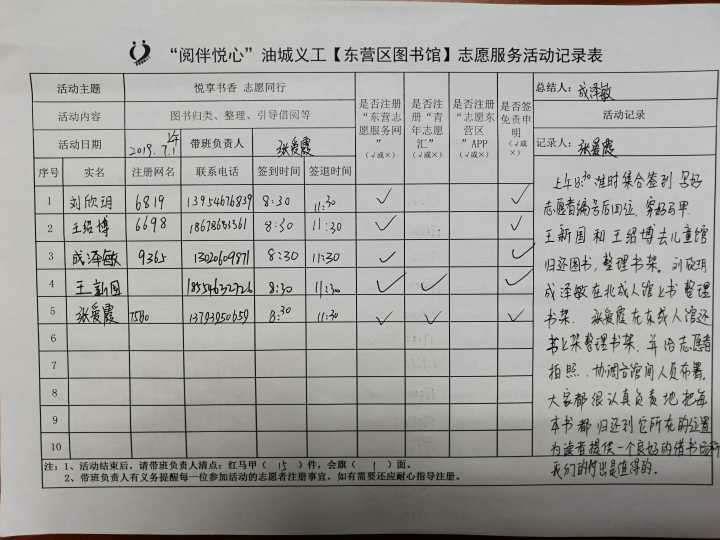 “阅伴悦心”油城义工【东营区图书馆】志愿服务活动记录表
活动主题 悦享书香 志愿同行
活动内容 图书归类、整理、引导借阅等
活动日期 2019.7.1 上午 带班负责人 张爱霞
序号 实名 注册网名 联系电话 签到时间 签退时间
是否注册“东营志愿服务网”（√或×）
是否注册“青年志愿汇”（√或×）
是否注册“志愿东营区”APP（√或×）
是否签免责申明（√或×）
1 刘欣玥 6819 13954676839 8:30 11:30 √ √
2 王绍博 6698 8:30 11:30 √ √
3 成泽敏 9365 13020609871 8:30 11:30 √ √
4 王新国 8:30 11:30 √ √ √
5 张爱霞 7580 13793950659 8:30 11:30 √ √ √
6
7
8
9
10
注：1、活动结束后，请带班负责人清点：红马甲（ 15 ）件，会旗（ 1 ）面。
2、带班负责人有义务提醒每一位参加活动的志愿者注册事宜，如有需要还应耐心指导注册。
总结人：成泽敏
活动记录
记录人：张爱霞
上午8:30准时集合签到 写好
志愿者编号后四位，穿好马甲.
王新国和王绍博去儿童馆
归还图书，整理书架。刘欣玥
成泽敏在北成人馆上书整理
书架. 张爱霞在东成人馆还
书上架整理书架，并给志愿者
拍照.协调各馆间人员布署。
大家都很认真负责地把每
本书都归还到它所在的位置
为读者提供一个良好的借书
我们的付出是值得的。